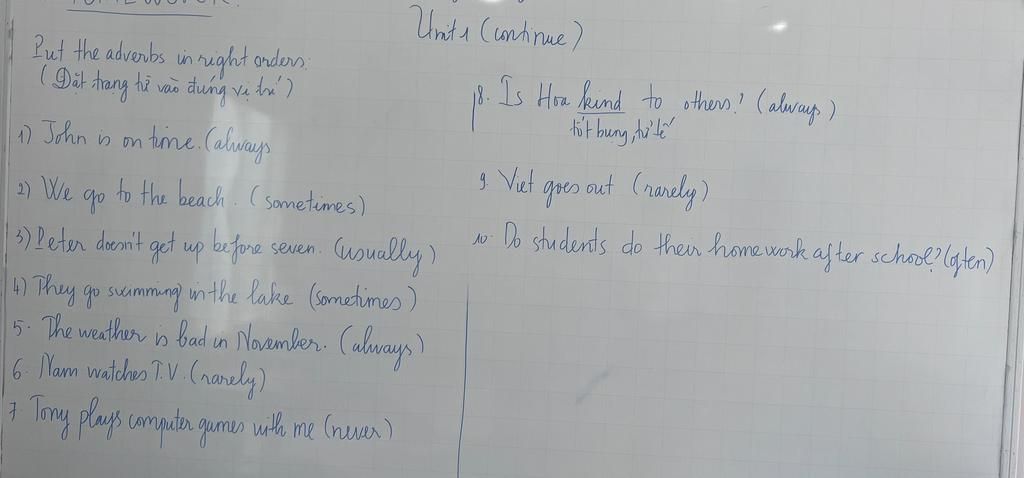 HOMEWORK:
Unit 1 (continue)
Put the adverbs in right orders:
(Đặt trạng từ vào đúng vị trí)
1) John is on time. (always
2) We go to the beach. (sometimes)
3) Peter doesn't get up before seven. (usually)
4) They go swimming in the lake (sometimes)
5. The weather is bad in November. (always)
6. Nam watches T.V. (rarely)
7 Tony plays computer games with me (never)
8. Is Hoa kind to others? (always)
tốt bụng, tử tế
9. Viet goes out (rarely)
10. Do students do their homework after school? (often)